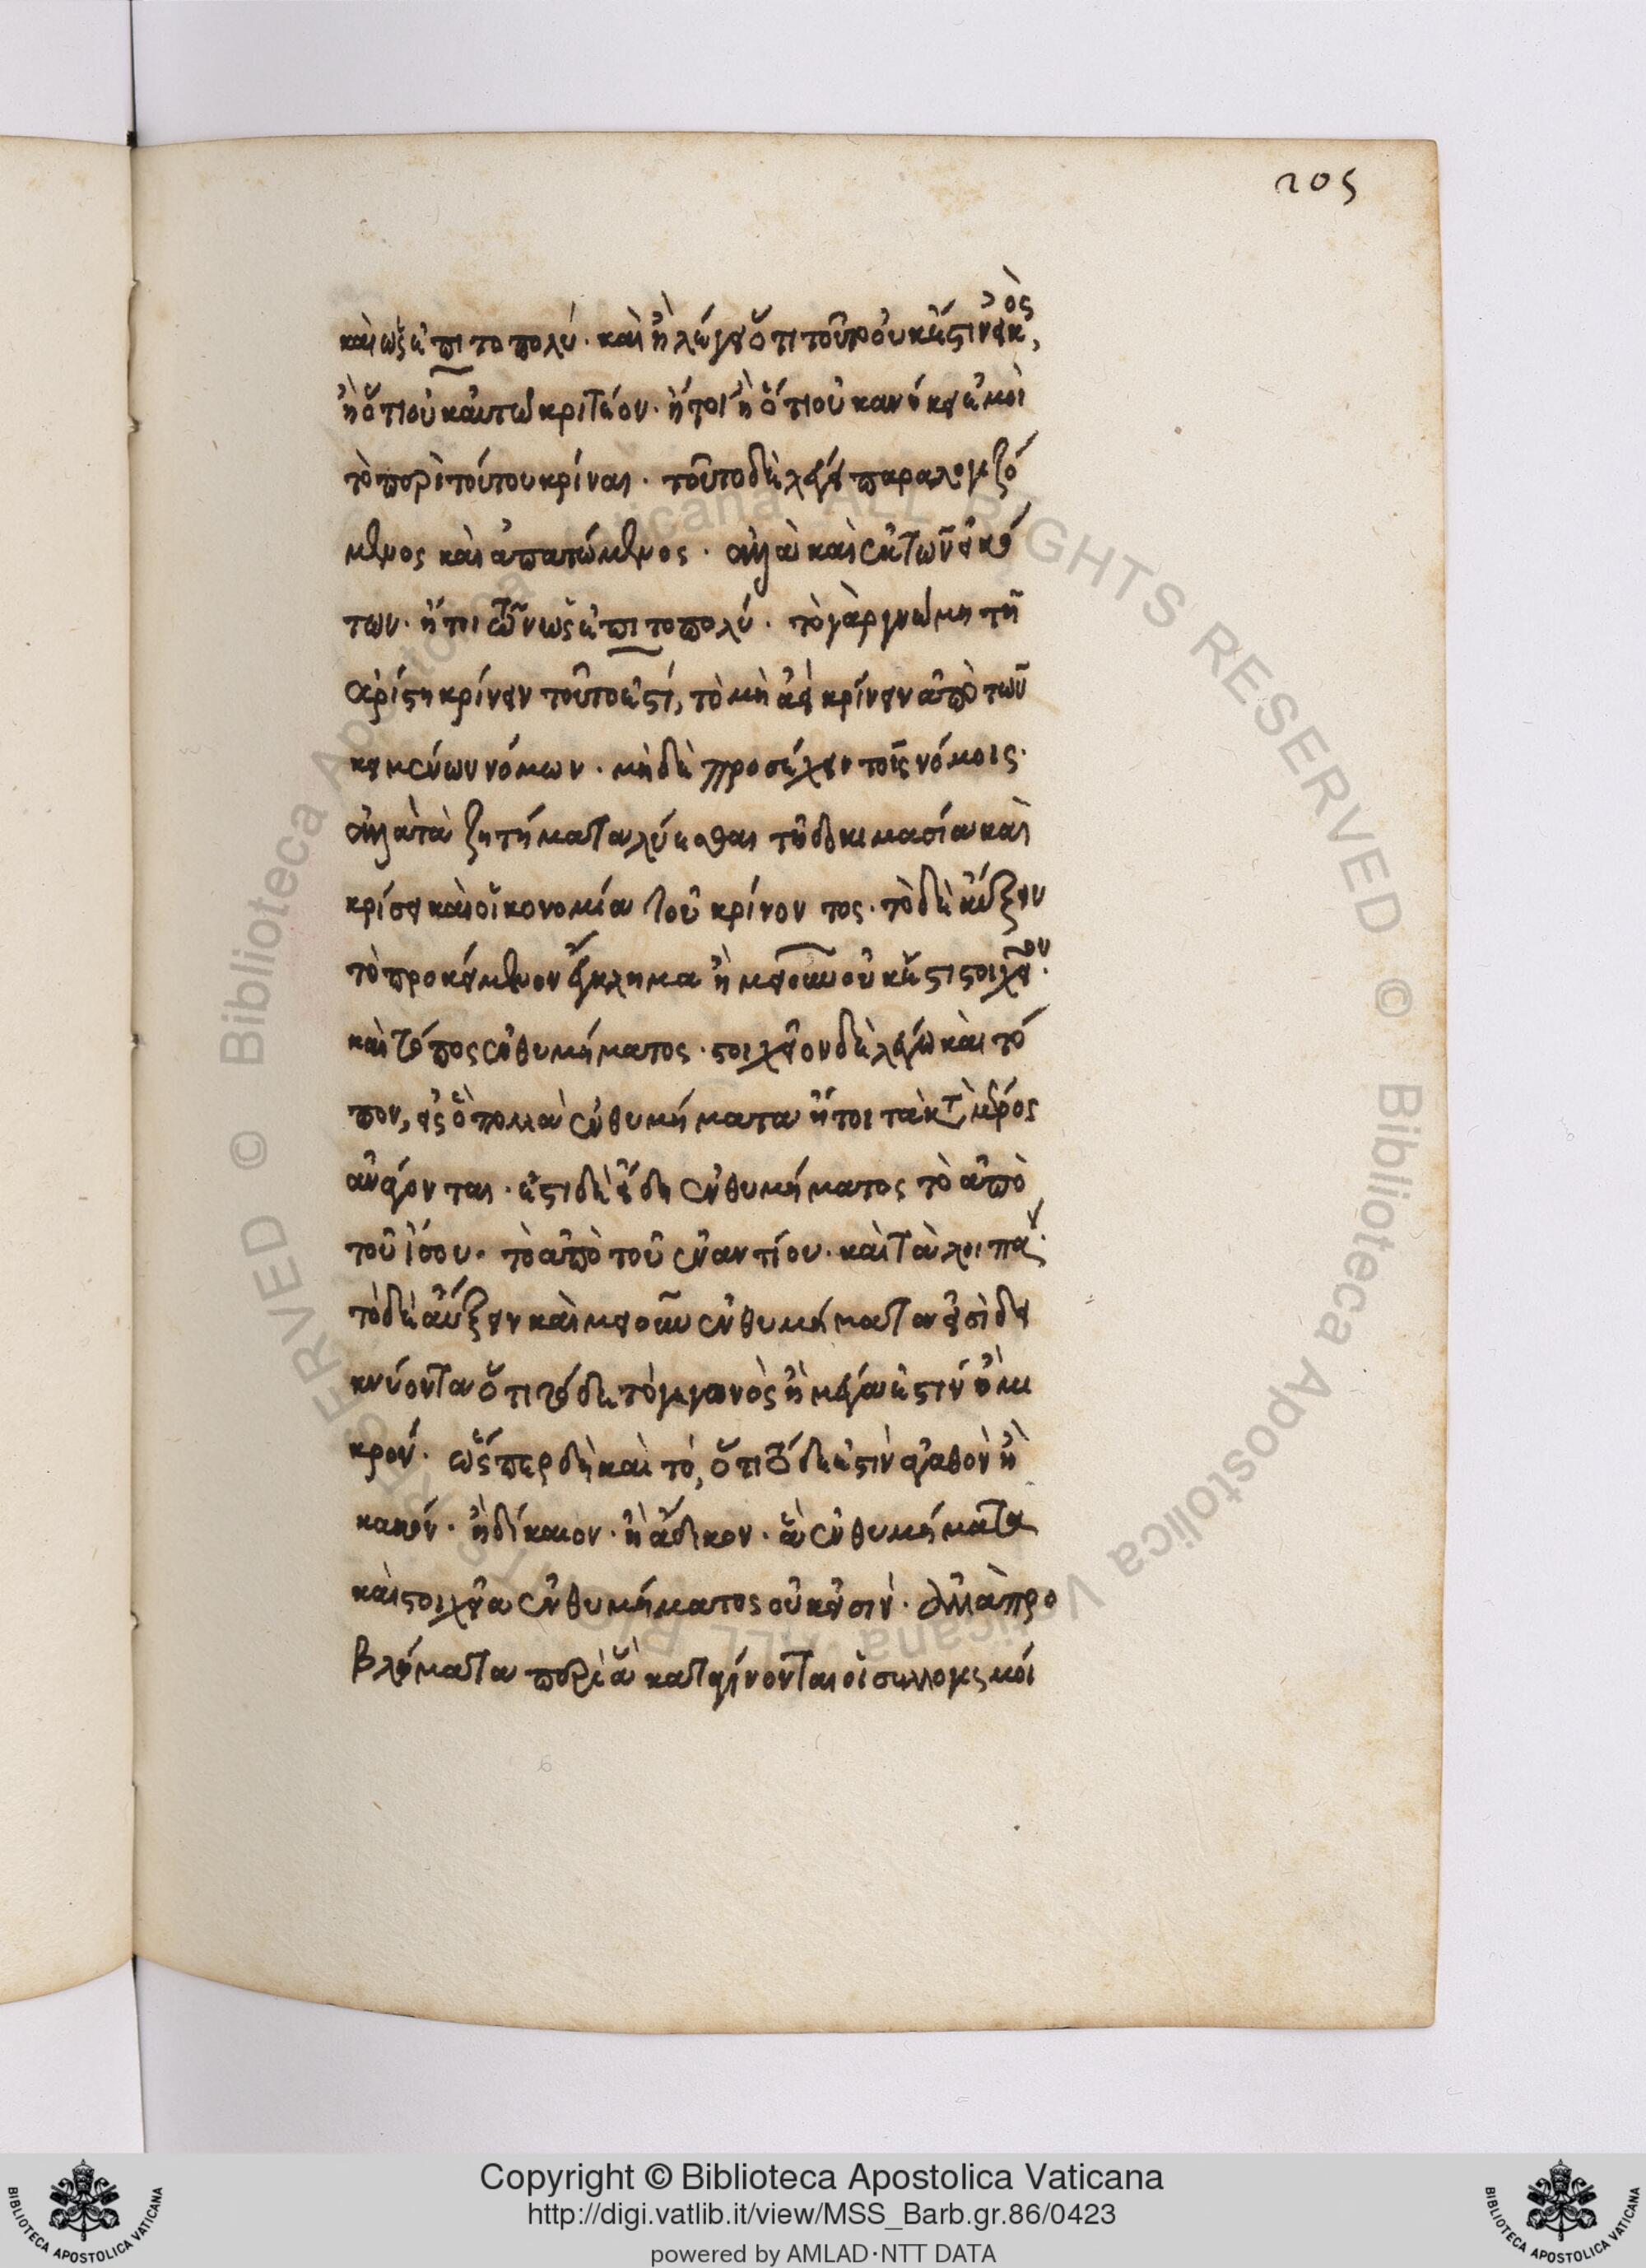 205
καὶ ὡς ἐπιτοπολύ. καὶ ἢ λέγει ὅτι τοῦτο οὐκ ἔστιν εἰκὸς,
ἢ ὅτι οὐκ αὐτῷ κριτέον. ἤτοι ἢ ὅτι οὐκ ἀνήκει ἐμοὶ
τὸ περὶ τούτου κρίναι. τοῦτο δὲ λέγει παραλογιζό
μενος καὶ ἀπατώμενος. ἀλλὰ καὶ ἐκ τῶν εἰκό
των. ἤτοι τῶν ὡς ἐπιτοπολύ. τὸ γὰρ γνώμη τῆ
ἀρίστη κρίνειν τοῦτο ἐστί, τὸ μὴ ἀεὶ κρίνειν ἀπὸ τῶν
κειμένων νόμων. μὴδὲ προσέχειν τοῖς νόμοις.
ἀλλὰ τὰ ζητήματα λύεσθαι τῆ δοκιμασία καὶ
κρίσει καὶ οἰκονομία τοῦ κρίνοντος. τὸ δὲ αὔξειν
τὸ προκείμενον ἔγκλημα ἢ μειοῦν οὐκ ἔστι στοιχεῖον.
καὶ τόπος ἐνθυμήματος. στοιχεῖον δὲ λέγω καὶ τό
πον, εἰς ὃ πολλὰ ἐνθυμήματα ἤτοι τὰ κατὰ μέρος
ἀνάγονται. ἔστι δὲ εἴδη ἐνθυμήματος τὸ ἀπὸ
τοῦ ἴσου. τὸ ἀπὸ τοῦ ἐναντίου. καὶ τὰ λοιπά.
τὸ δὲ αὔξειν καὶ μειοῦν ἐνθυμήματα εἰσὶ δει
κνύοντα ὅτι τόδε τὸ γεγονὸς ἢ μέγα ἐστὶν ἢ μι
κρόν. ὥσπερ δὴ καὶ τό, ὅτι τόδε ἐστὶν ἀγαθὸν ἢ
κακόν. ἢ δίκαιον. ἢ ἄδικον. ἃ ἐνθυμήματα
καὶ στοιχεῖα ἐνθυμήματος οὐκ εἰσιν. ἀλλὰ προ
βλήματα περὶ ἃ καταγίνονται οἱ συλλογισμοί
Copyright © Biblioteca Apostolica Vaticana
http://digi.vatlib.it/view/MSS_Barb.gr.86/0423
powered by AMLAD·NTT DATA